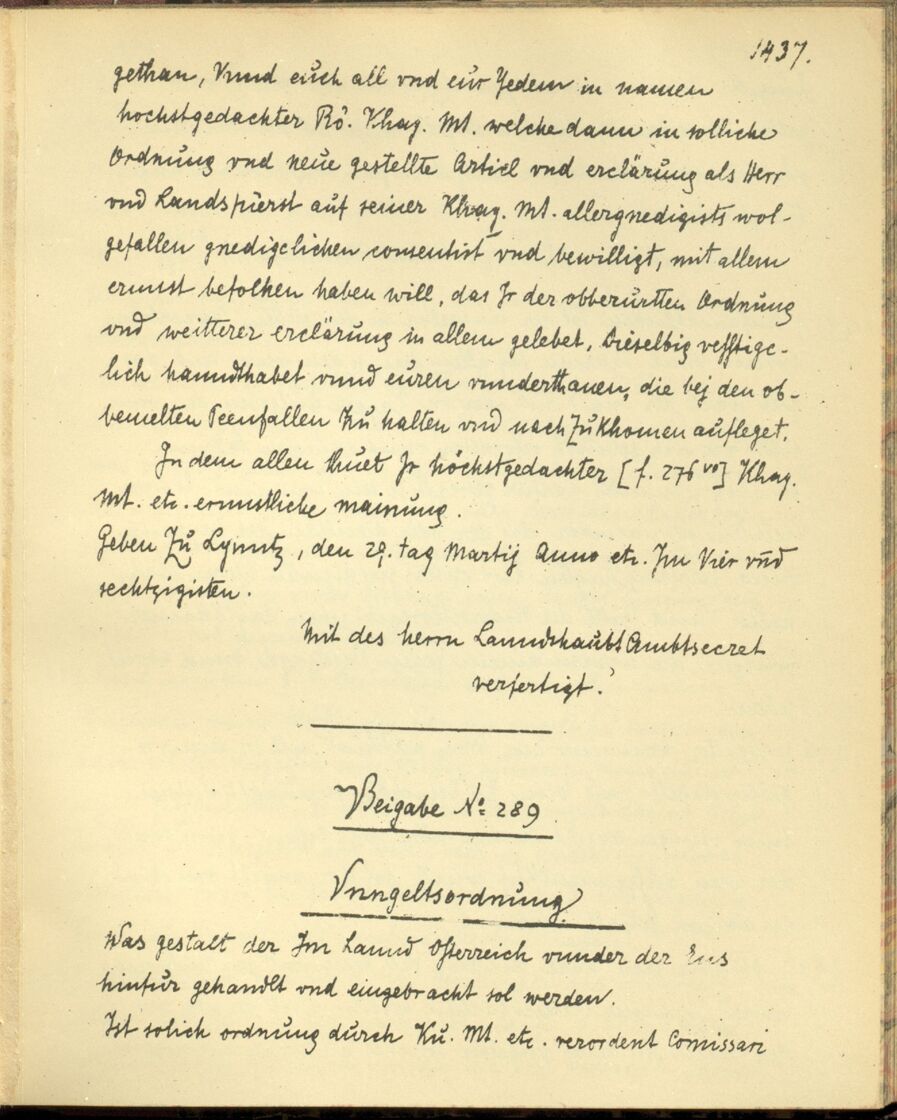 1437.
gethan, Vnnd euch all vnd eur Yedem in namen
hochstgedachter Rö. Khay. Mt. welche dann in solliche
Ordnung vnd neue gestellte Articl vnd erclärung als Herr
vnd Landsfürst auf seiner Khay. Mt. allergnedigists wol-
gefallen gnedigclichen consentirt vnd bewilligt, mit allem
ernnst befolhen haben will, das Jr der obberurtten Ordnung
vnd weitterer erclärung in allem gelebet, Dieselbig vesstigc-
lich hanndthabet vnnd euren vnnderthanen, die bej den ob-
bemelten Peenfallen Zu halten vnd nach Zu Khomen aufleget.
In dem allen thuet Jr höchstgedachter [f. 276 vo] Khay.
Mt. etc. ernnstliche mainung.
Geben Zu Lynntz, den 29. tag Martij Anno etc. Im Vier vnd
sechtzigisten.
Mit des herrn Lanndshaubt Ambtsecret
verfertigt.
Beigabe No 289
Vnngeltsordnung
Was gestalt der Im Lannd Österreich vnnder der Ens
hinfur gehandlt vnd eingebracht sol werden.
Ist solich ordnung durch Ku. Mt. etc. verordent Comissari